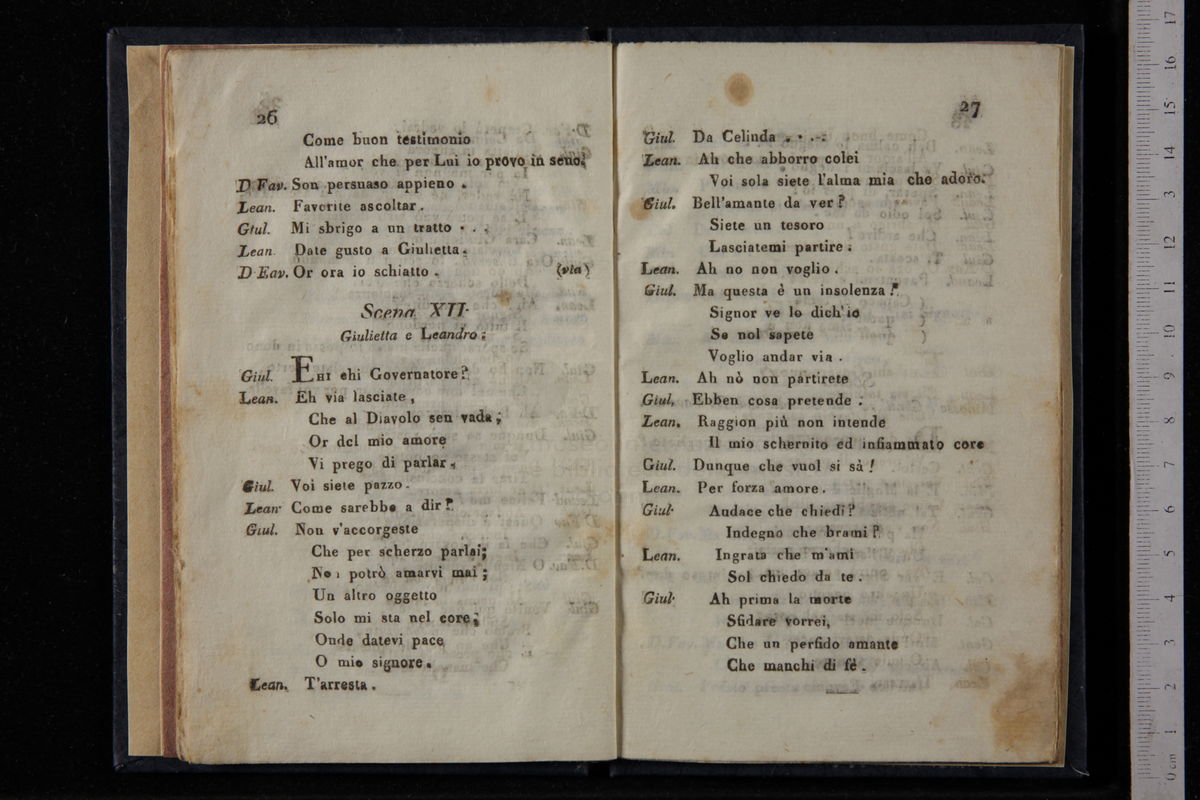 26
Come buon testimonio
All'amor che per Lui io provo in seno.
D Fav. Son persuaso appieno .
Lean. Favorite ascoltar .
Giul. Mi sbrigo a un tratto . . .
Lean Date gusto a Giulietta .
D Eav. Or ora io schiatto . (via)
Scena XII.
Giulietta e Leandro ;
Giul. EHI ehi Governatore ?
Lean. Eh via lasciate ,
Che al Diavolo sen vada ;
Or del mio amore
Vi prego di parlar .
Giul. Voi siete pazzo .
Lean. Come sarebbe a dir ?
Giul. Non v'accorgeste
Che per scherzo parlai ;
Non potrò amarvi mai ;
Un altro oggetto
Solo mi sta nel core ;
Onde datevi pace
O mio signore .
Lean. T'arresta .
27
Giul. Da Celinda . . . .
Lean. Ah che abborro colei
Voi sola siete l'alma mia che adoro.
Giul. Bell'amante da ver ?
Siete un tesoro
Lasciatemi partire .
Lean. Ah no non voglio .
Giul. Ma questa è un insolenza !
Signor ve lo dich'io
Se nol sapete
Voglio andar via .
Lean. Ah nò non partirete
Giul. Ebben cosa pretende .
Lean. Raggion più non intende
Il mio schernito ed infiammato core
Giul. Dunque che vuol si sà !
Lean. Per forza amore .
Giul. Audace che chiedi ?
Indegno che brami ?
Lean. Ingrata che m'ami
Sol chiedo da te .
Giul. Ah prima la morte
Sfidare vorrei,
Che un perfido amante
Che manchi di fè .
0 cm 1 2 3 4 5 6 7 8 9 10 11 12 13 14 15 16 17